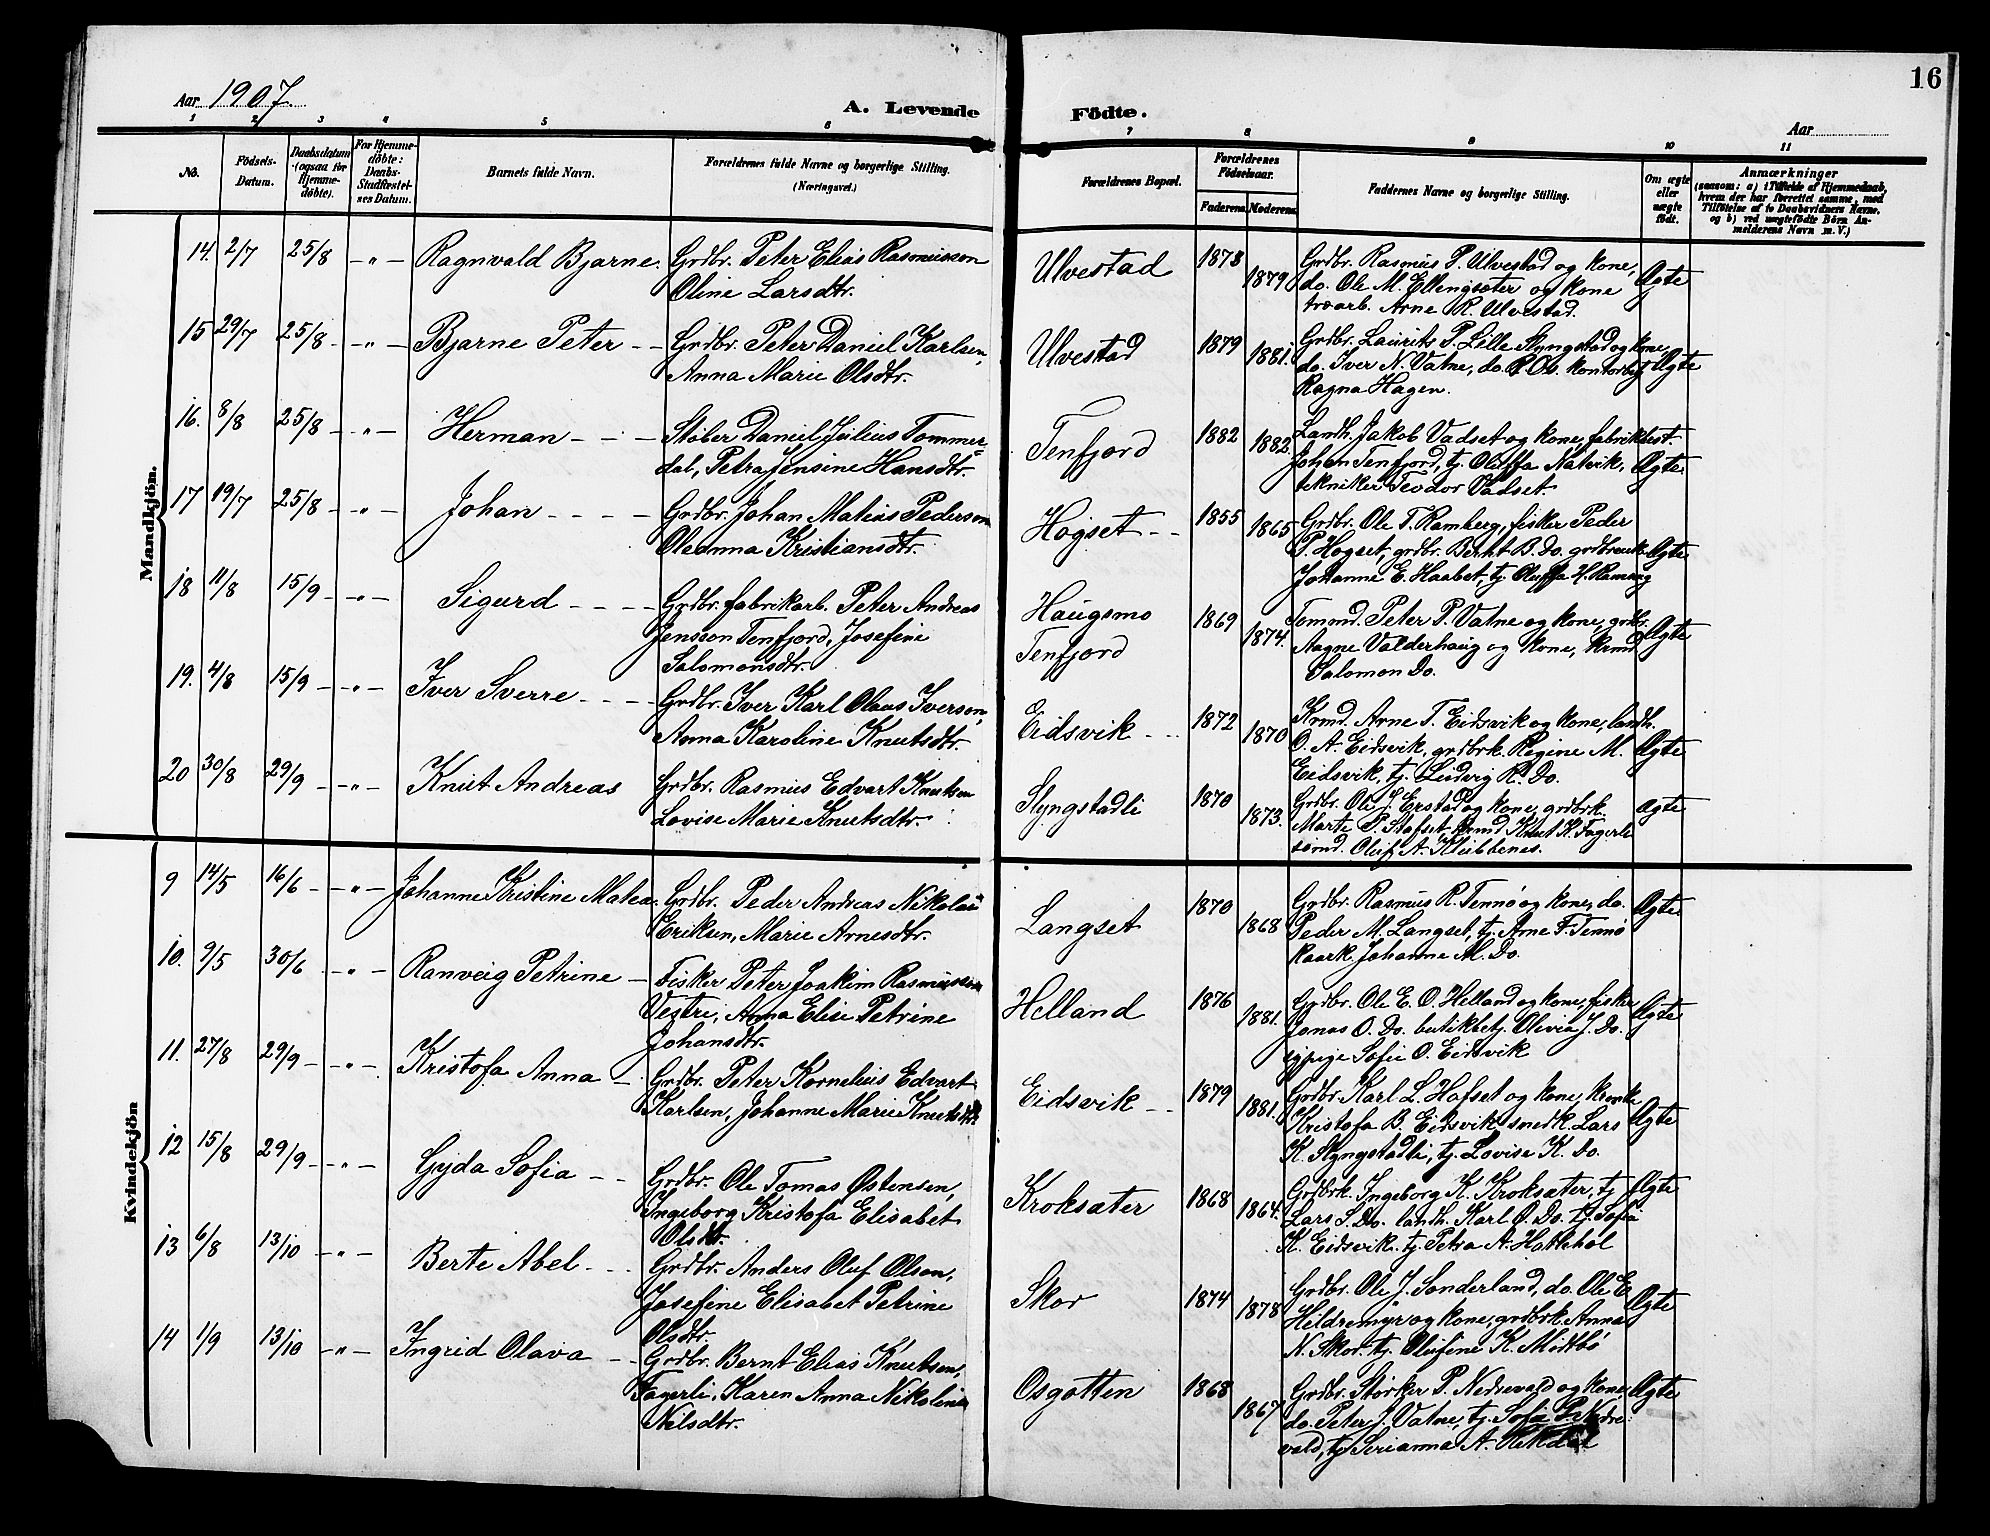 16
Aar 1907.
A. Levende Födte.
Aar
1 2 3 4 5 6 7 8 9 10 11
No.
Födsels-Datum.
Daabsdatum (ogsaa for Hjemmedøbte).
For Hjemmedøbte: Daabs-Stadfæstelses Datum.
Barnets fulde Navn.
Forældrenes fulde Navne og borgerlige Stilling. (Næringsvei.)
Forældrenes Bopæl.
Forældrenes Födselsaar.
Faderens. Moderens.
Faddernes Navne og borgerlige Stilling.
Om ægte eller uægte født.
Anmærkninger
(saasom: a) i Tilfælde af Hjemmedaab, hvem der har forrettet samme, med Tilföielse af to Daabsvidners Navne, og b) ved uægtefödte Börn Anmelderens Navn m. V.)
Mandkjön.
14. 2/7 25/8 - " - Ragnvald Bjarne. Grdbr. Peter Elias Rasmusson Ulvestad 1878 Grdbr. Rasmus P. Ulvestad og kone,
Oline Larsdtr. 1879 do. Ole M. Ellengsæter og kone Ægte
træarb. Arne R. Ulvestad.
15 29/7 25/8 - " - Bjarne Peter - - Grdbr. Peter Daniel Karlsen, Ulvestad 1879 Grdbr. Laurits P. Lille Slyngstad og kone,
Anna Marie Olsdtr. 1881. do. Iver N. Vatne, do. P. Os. kontorbest. Ægte
Ragna Hagen.
16. 8/8 25/8 - " - Herman - - - Støber Daniel Julius Tommer= Tenfjord 1882 Landh. Jakob Vadset og kone, fabrikbest.
dal, Petra Jensine Hansdtr. 1882. Johan Tenfjord, tj. Oluffa Natvik, Ægte.
tekniker Teodor Vadset.
17 19/7 25/8 - " - Johan - - - - Grdbr. Johan Matias Pederson Hogset - - 1855 Grdbr. Ole T. Ramberg, fisker Peder
Oleanna Kristiansdtr. 1865 P. Hogset, grdbr. Bernt B. Do. grdbrenk. Ægte
Johanne E. Haabet, tj. Oluffa H. Ramberg
18 11/8 15/9 - " - Sigurd - - - - Grdbr. fabrikarb. Peter Andreas Haugsmo 1869 Tømmd. Peter P. Vatne og kone, grdbr.
Jensson Tenfjord, Josefine Tenfjord 1874. Aagne Valderhaug og kone, krmd. Ægte
Salomonsdtr. Salomon Do.
19. 4/8 15/9 - " - Iver Sverre - - - Grdbr. Iver Karl Olaus Iverson, Eidsvik - - 1872 Krmd. Arne T. Eidsvik og kone, landh.
Anna Karoline Knutsdtr. 1870 O. A. Eidsvik, grdbrk. Regine M. Ægte
Eidsvik, tj. Ludvig R. Do.
20 30/8 29/9 - " - Knut Andreas Grdbr. Rasmus Edvart Knutsen Slyngstadli 1870 Grdbr. Ole J. Erstad og kone, grdbrk.
Lovise Marie Knutsdtr. 1873. Marte P. Stafset krmd Knut K. Fagerli ægte
tømd. Oluf A. Klubbenes.
Kvindekjön
9 14/5 16/6 - " - Johanne Kristine Matea. Grdbr. Peder Andreas Nikolai Langset 1870 Grdbr. Rasmus R. Tennø og kone, do. Ægte
Eriksen, Marie Arnesdtr. 1868 Peder M. Langset, tj. Arne F. Tennø
Johanne M. Do.
10. 9/5 30/6 - " - Ranveig Petrine - Fisker Peter Joakim Rasmussen Helland 1876 Grdbr. Ole E. O. Helland og kone, fisker
Vestre, Anna Elise Petrine 1881. Jonas O. Do. butikbetj. Olivia J. Do. Ægte
Johansdtr. sypige Sofie O. Eidsvik
11. 27/8 29/9 - " - Kristofa Anna - Grdbr. Peter Kornelius Edvart Eidsvik - - 1879 Grdbr. Karl L. Hafset og kone,
Karlsen, Johanne Marie Knutsdtr. 1881. Kristofa B. Eidsvik snedk. Lars Ægte
K. Slyngstadli, tj. Lovise K. Do.
12 15/8 29/9 - " - Gyda Sofia - - Grdbr. Ole Tomas Ostensen, Kroksæter 1868 Grdbrk. Ingeborg K. Kroksæter, tj. Ægte
Ingeborg Kristofa Elisabet 1864. Lars S. Do. landh. Karl O. Do. tj. Sofia
Olsdtr. K. Eidsvik. tj. Petra A. Hattehol
13 6/8 13/10 - " - Berte Abel - - Grdbr. Anders Oluf Olson, Skor 1874 Grdbr. Ole J. Sonderland, do. Ole E.
Josefine Elisabet Petrine 1878 Hildremyr og kone, grdbrk. Anna Ægte
Olsdtr. N. Skor. tj. Olufine K. Midtbö
14 1/9 13/10 - " - Ingrid Olava - - Grdbr. Bernt Elias Knutson, Osgotten 1868 Grdbr. Størker P. Nedrevald og kone, Ægte
Fagerli, Karen Anna Nikoline 1867 do. Peter J. Vatne, tj. Sofie P. Nedre-
Nilsdtr. vald, tj. Serianna A.